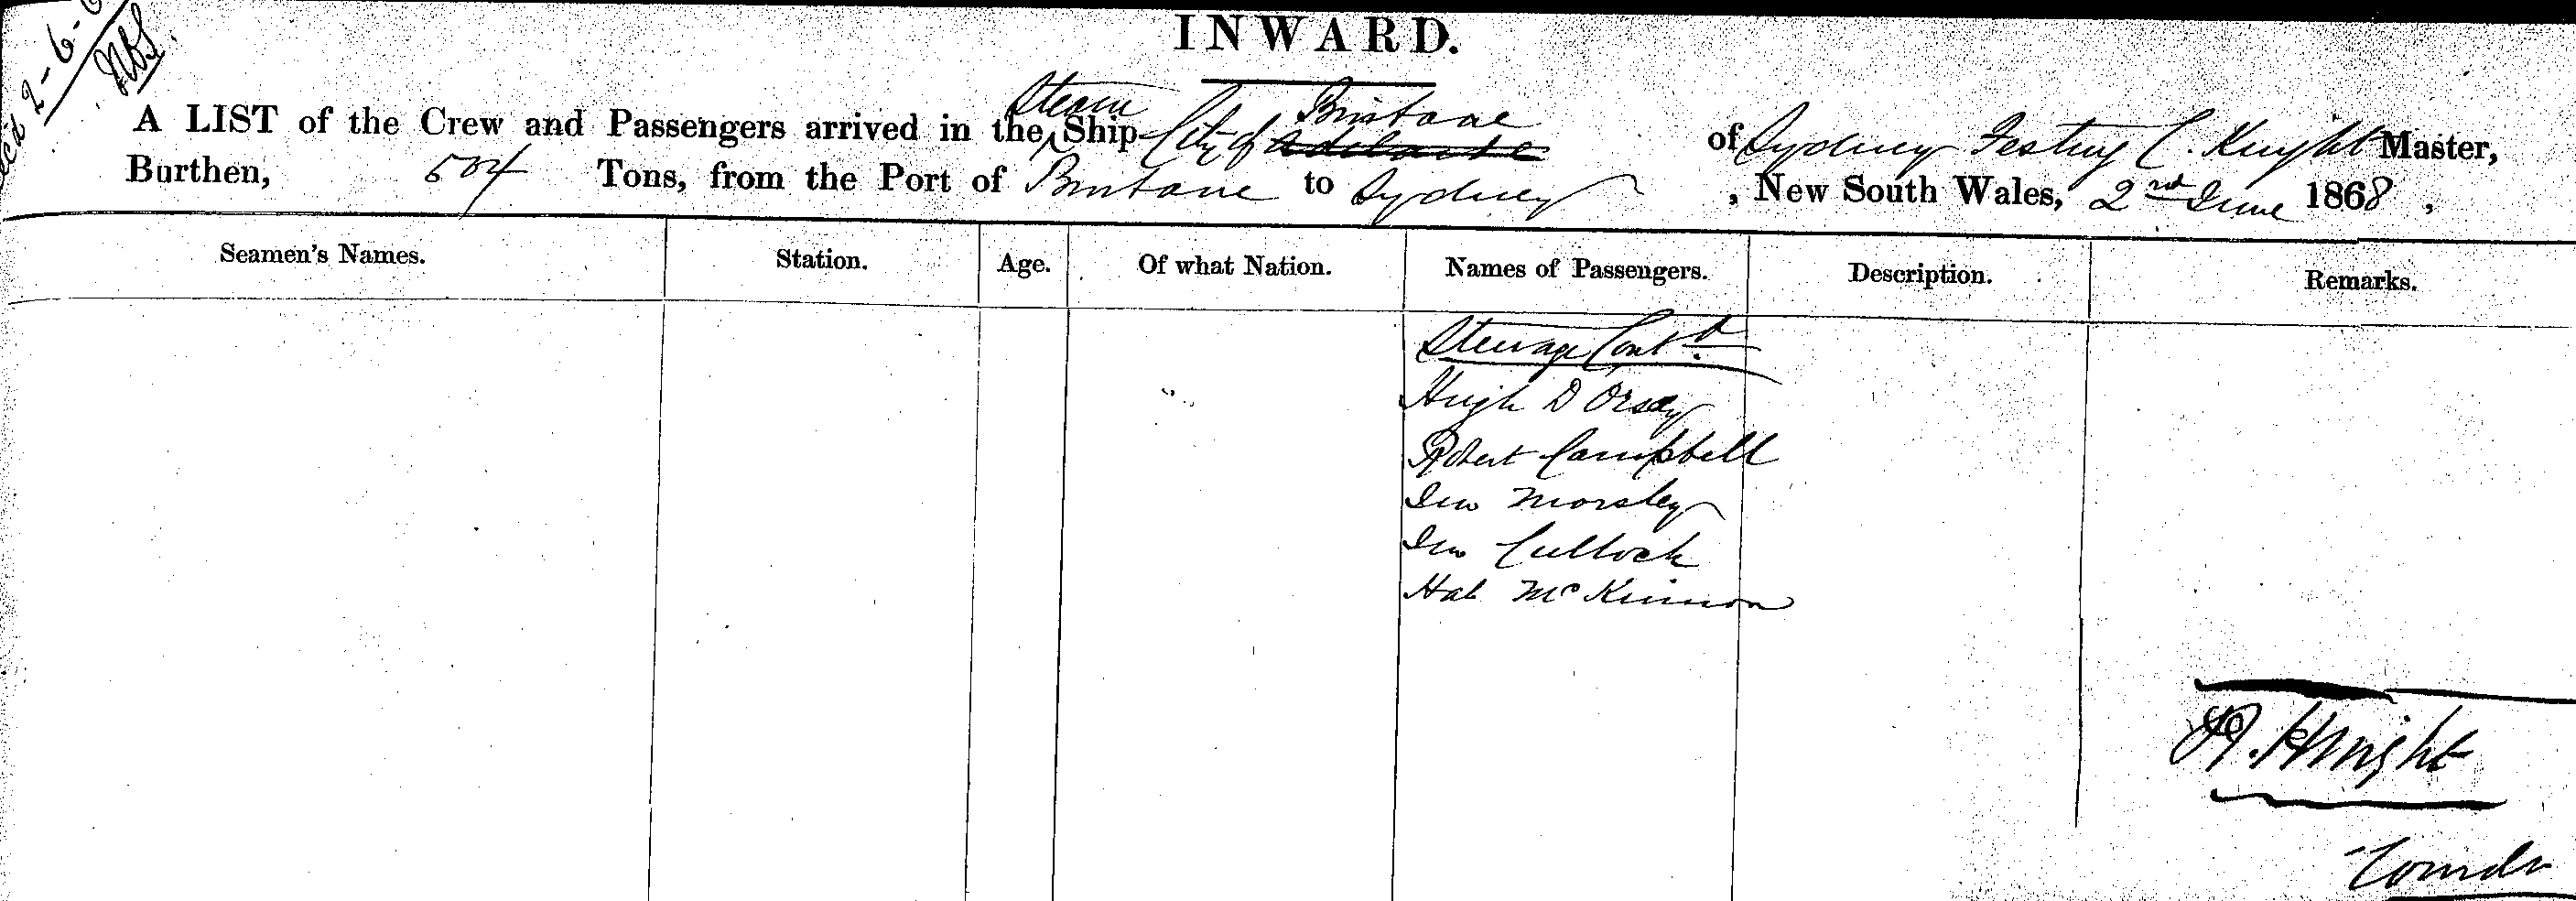 INWARD.
A LIST of the Crew and Passengers arrived in the Steam Ship City of Brisbane of Sydney C. Knight Master,
Burthen, 504 Tons, from the Port of Brisbane to Sydney, New South Wales, 2nd June 1868,
Seamen's Names. Station. Age. Of what Nation. Names of Passengers. Description. Remarks.
Steerage Contd.
Hugh D Orsay
Robert Campbell
Morsley
Cullock
McKinnon
Knight